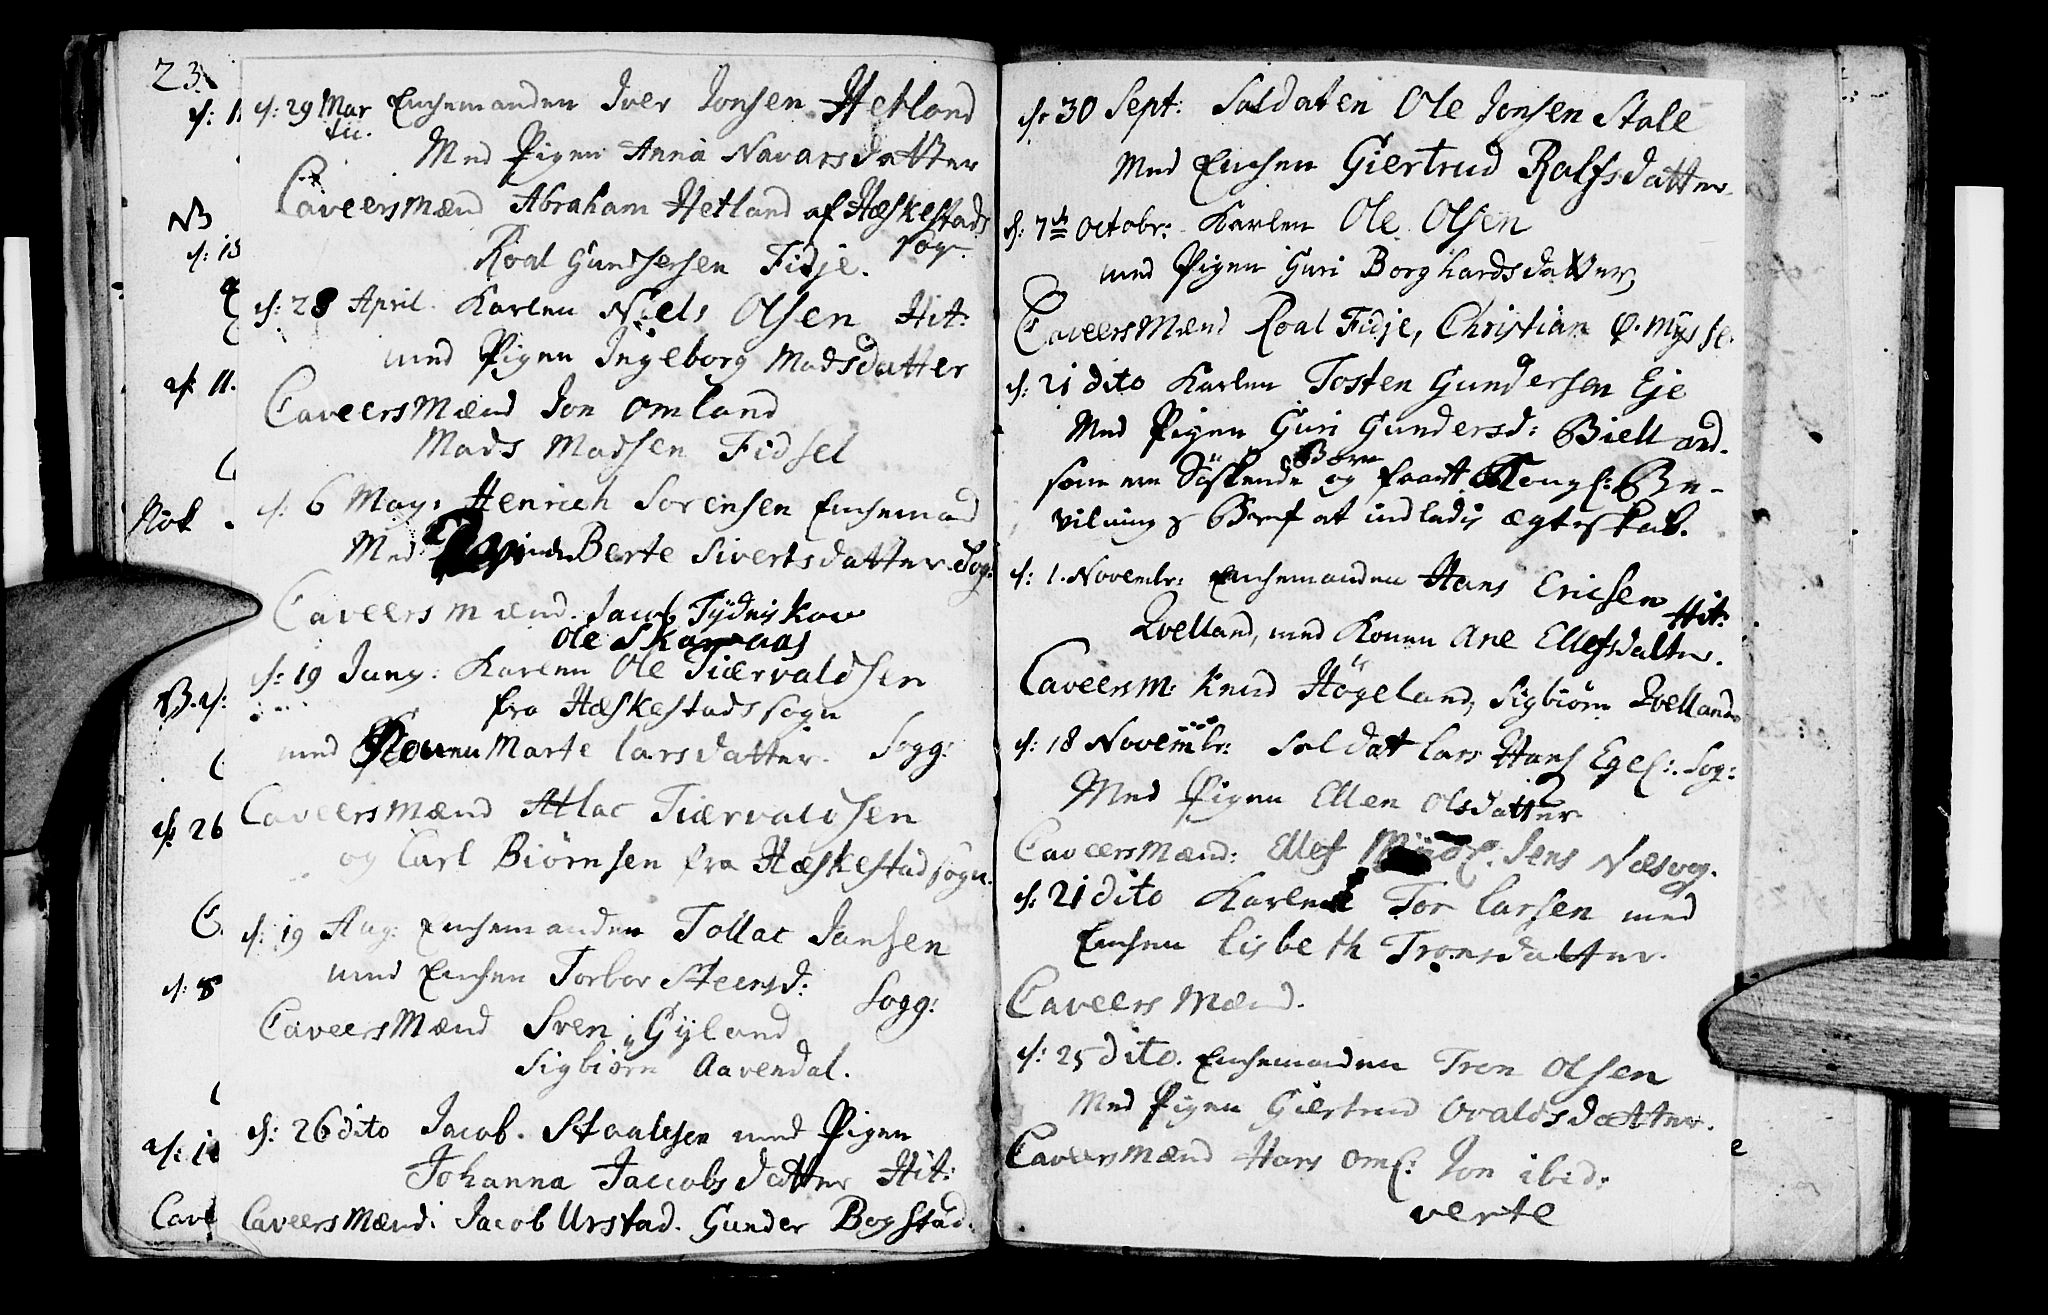 23.
d: 29 Mar Enchemanden Iver Jonsen Hetland
tii.
Med Pigen Anna Navarsdatter
Caveersmænd Abraham Hetland af Hæskestads
Sogn.
Roal Gundersen Fidje.
d: 28 April. Karlen Niels Olsen Hit:
med Pigen Ingeborg Madsdatter
Caveersmænd Jon Omland
Mads Madsen Fidsel
d: 6 May: Henrich Sorensen Enchemand
Med Berte Sivertsdatter. Sog:
Caveersmænd. Jacob Tydniskou
Ole Skaraas
d: 19 Juny: Karlen Ole Tiærvaldsen
fra Hæskestads sogn
med Konen Marte Larsdatter. Sogg:
Caveersmænd Atlac Tiærvaldsen
og Carl Biørnsen fra Hæskestad sogn.
d: 19 Aug: Enchemanden Tollac Jansen
med Enchen Torbor Steensd: Sogg:
Caveersmænd Sven Gyland
Sigbiørn Aavendal.
d: 26 dito Jacob. Staalesen med Pigen
Johanna Jaccobsdatter Hit:
Caveersmænd: Jacob Urstad. Gunder Bogstad.
d: 11
NB
d: 15
d: 11.
Nok
B. d:
d: 26
C.
d: 8
d: 11
Cave
d: 30 Sept: Soldaten Ole Jonsen Stale
Med Enchen Giertrud Ralfsdatter
d: 7de Octobr: Karlen Ole Olsen
med Pigen Guri Borghardsdatter
Caveersmænd Roal Fidje, Christian Ø. Mysse.
d: 21 dito Karlen Tosten Gundersen Eje
Med Pigen Guri Gundersd: Bielland.
Børn
som ere Söskende og faaet Kongl: Be-
vilnings Bref at indlade ægteskab.
d: 1. Novembr: Enchemanden Hans Ericsen
Hit:
Qvelland, med Konen Ane Ellefsdatter.
Caveersm: Knud Högeland, Sigbiørn Qvelland
d: 18 Novembr: Soldat Lars Hans Egel: Sog:
Med Pigen Ellen Olsdatter
Caveersmænd: Ellef Jens Næsvog.
d: 21 dito Karlen Tor Larsen med
Enchen Lisbeth Tronsdatter.
Caveersmænd.
d: 25 dito. Enchemanden Tron Olsen
Med Pigen Giertrud Ovaldsdatter.
Caveersmænd Hans Oml: Jon ibid:
verte